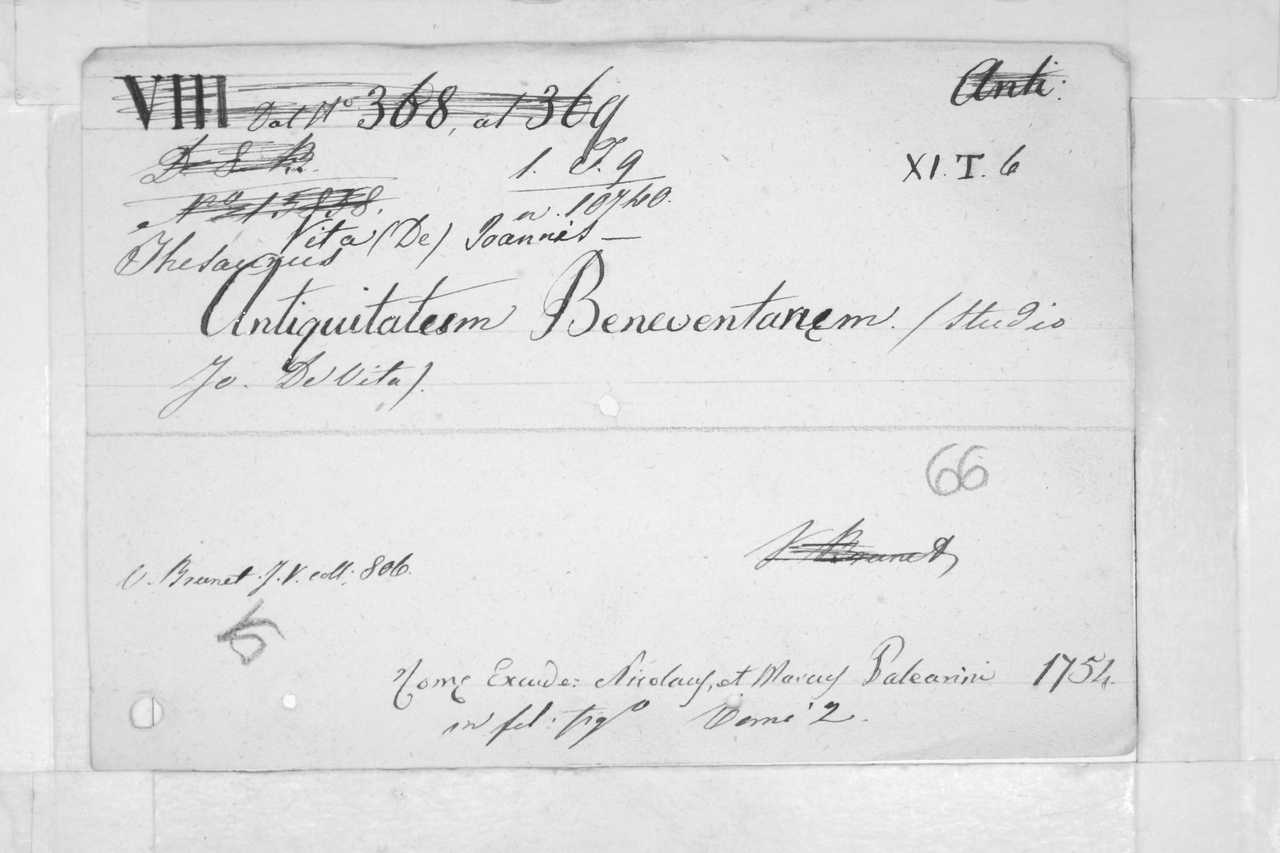 VIII Dal N° 368, al 369
Anti:
D. 8. R.
1. T. 9
XI. T. 6
N° 15838.
n. 10740.
Vita (De) Joannis —
Thesaurus
Antiquitatum Beneventanem. (studio
Jo. De Vita).
66
V. Brunet
V. Brunet. T. V. coll: 806.
5
Romę Excude: Nicolaus, et Marcus Palearini 1754.
in fol: fig° Tomi 2.